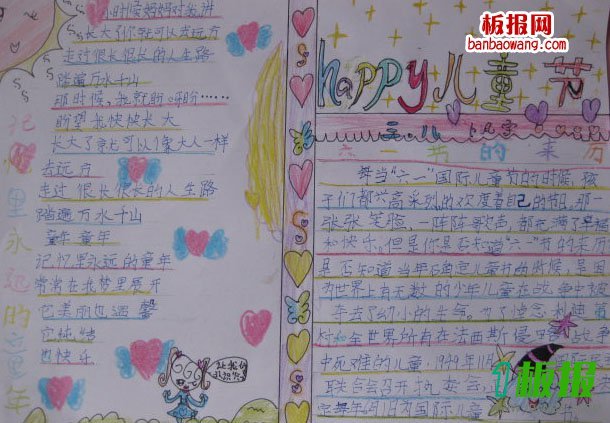 小时候妈妈对我讲
长大了你就可以去远方
走过很长很长的人生路
踏遍万水千山
那时候，我就盼啊盼……
盼望我快快长大
长大了就可以像大人一样
去远方
走过很长很长的人生路
踏遍万水千山
童年 童年
记忆里永远的童年
常常在我梦里展开
它美丽也温馨
它纯结
也快乐
记忆里永远的童年
板报网
banbaowang.com
happy儿童节
六一节的来历
每当"六一"国际儿童节的时候，孩
子们都兴高采烈的欢度着自己的节日,那一
张张笑脸，一阵阵歌声，都充满了幸福
和快乐。但是你是否知道"六一"节的来历
是否知道当年
为世界上有无数的少年儿童在战争中被
去了幼小的生命。为了悼念
和全世界所有在法西斯侵
中死难的儿童，1949年11月
联合会召开执委会，
定每年6月1日为国际儿童
板报